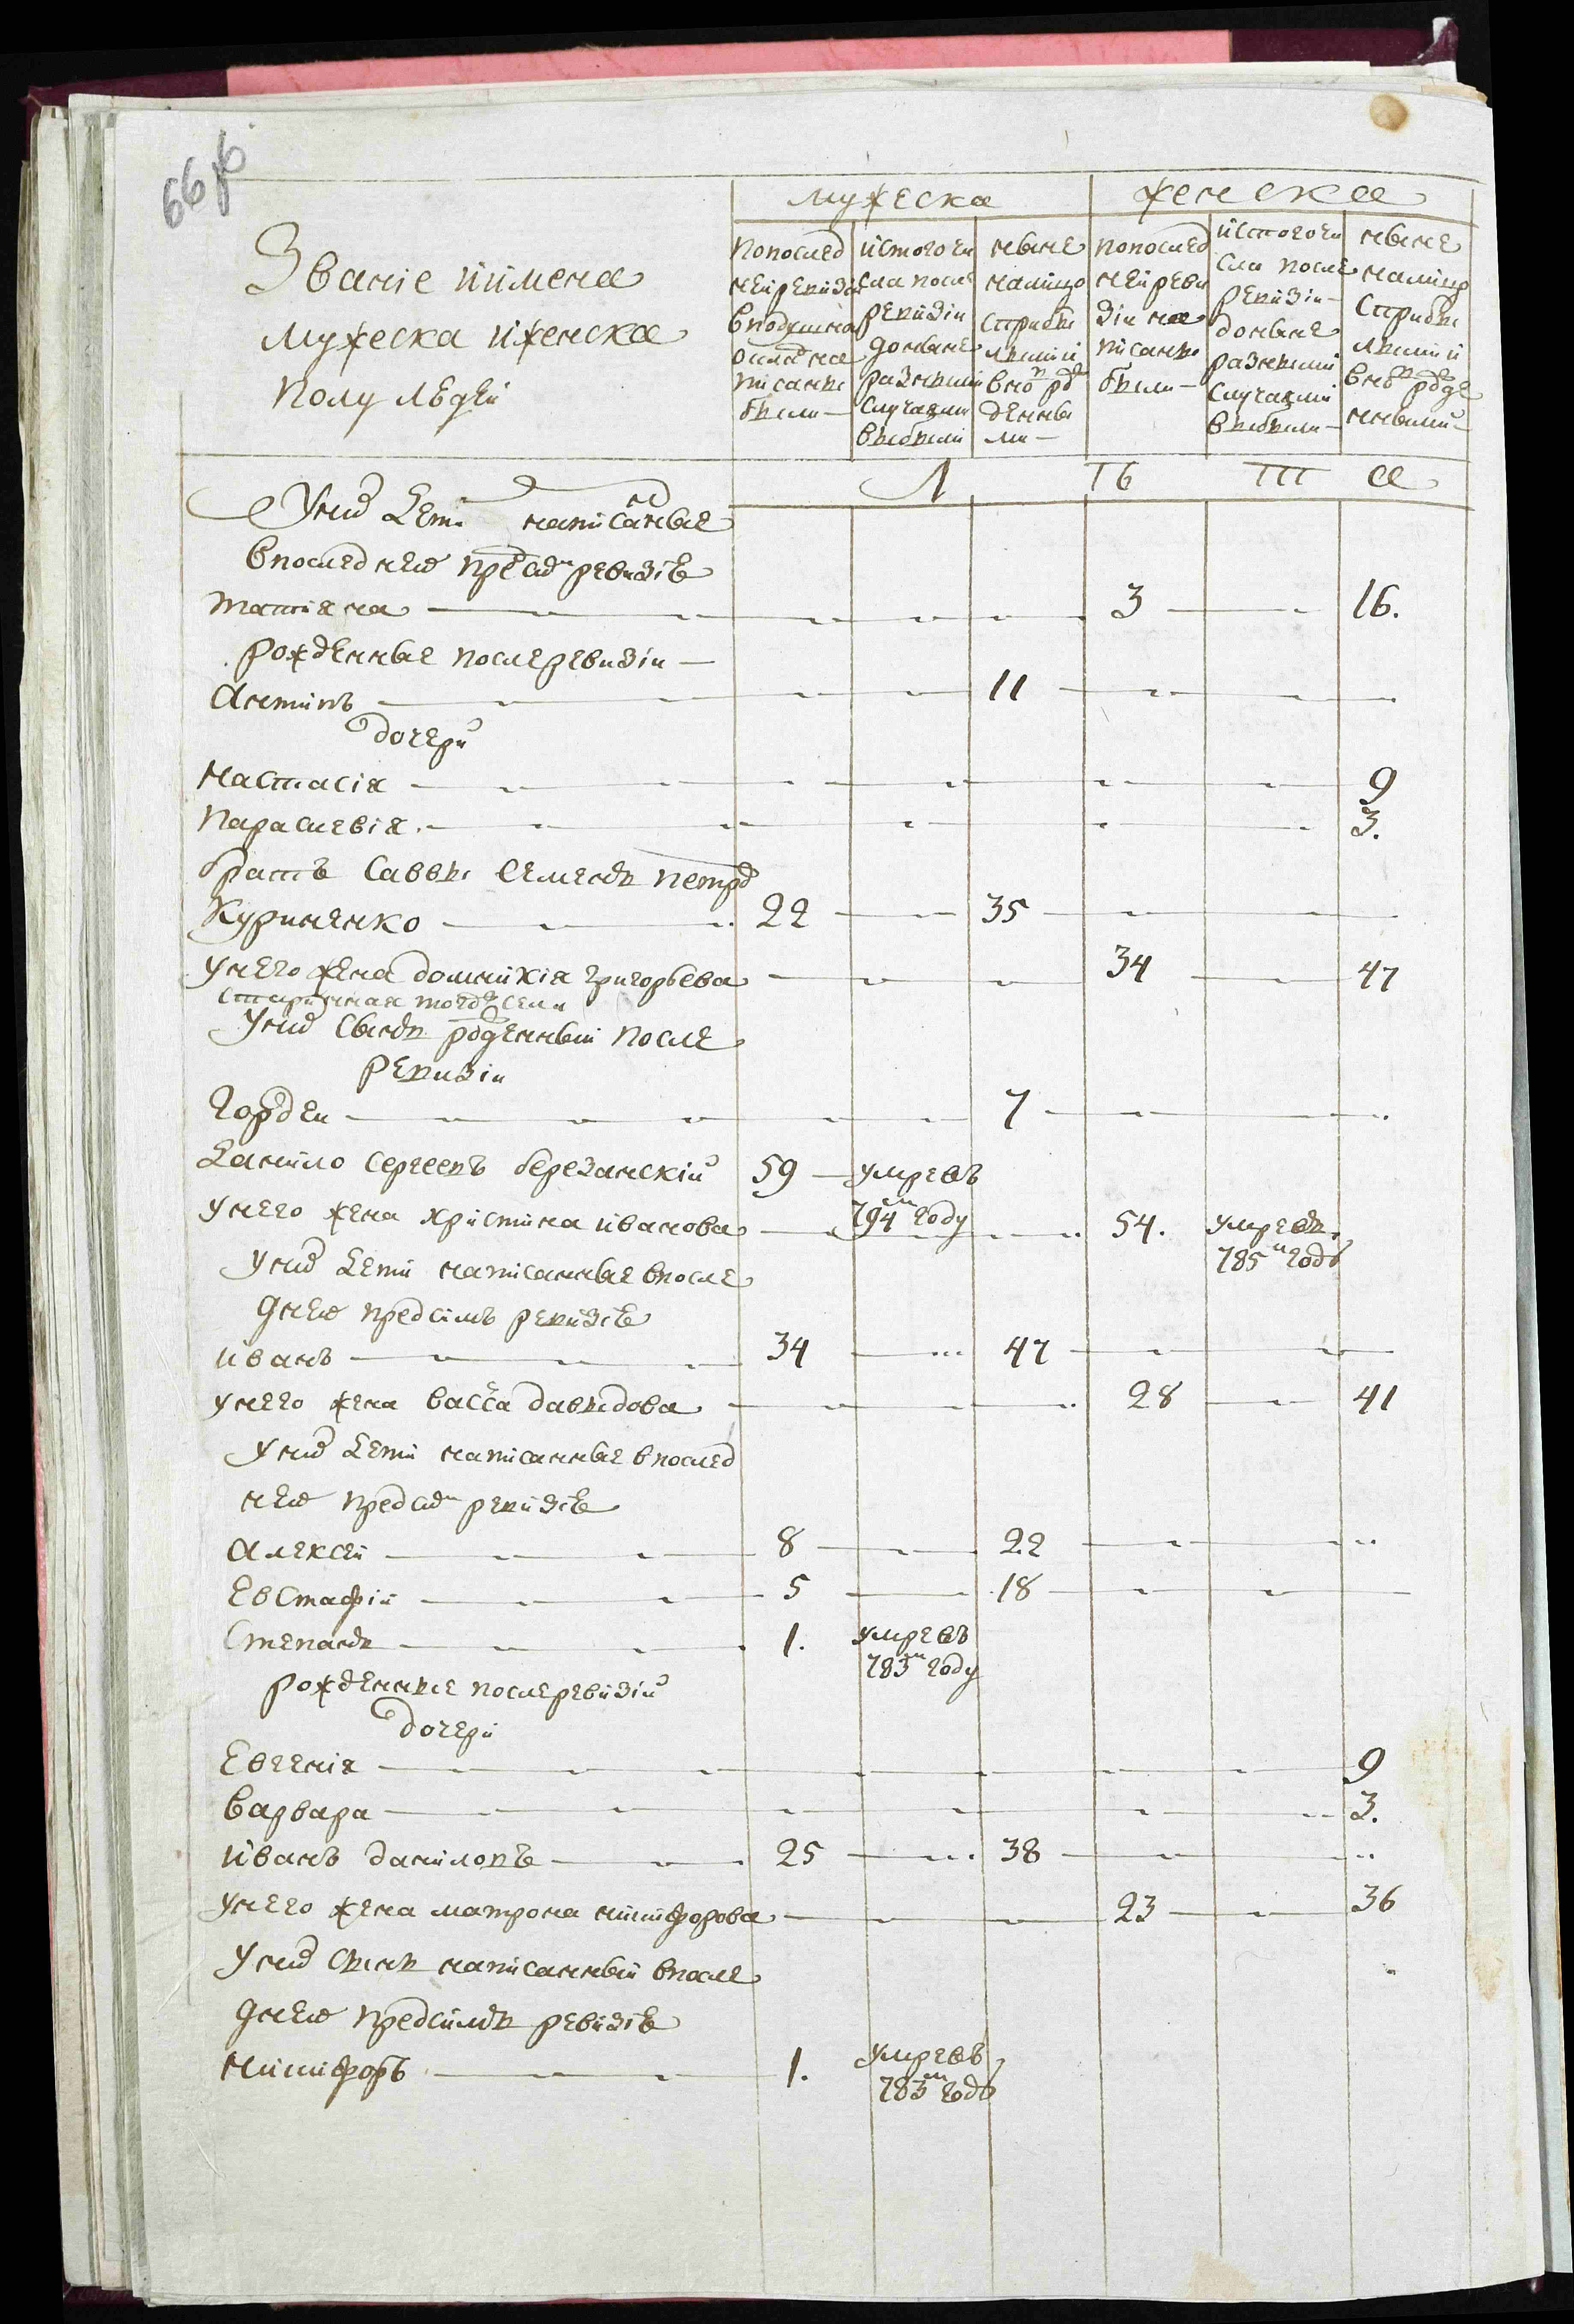 66 об
мужеска
женска
Званіе иимена
мужеска иженска
полу людей
попослед
ней ревизіи
вподушно
окладъ на
писаны
были
истого чи
сла после
ревизіи
доныне
разными
случаями
выбыли
ныне
налицо
сприбы
лыми и
вновь рож
денны
ми
попослед
ней реви
зіи на
писаны
были
истого чи
сла после
ревизіи
доныне
разными
случаями
выбыли
ныне
налицо
сприбы
лыми и
вновь рожде
нными
Л ѣ т а
Унихъ дети написанные
впоследнею предъ симъ ревизіе
татіяна 3 16.
рожденные послеревизіи
Антипъ 11
дочери
настасія 9
парасковія 3.
братъ саввы Семенъ петровъ
Куриленко 22 35
Унего жена домникія григорьева 34 47
старинная тогожъ села
Унихъ сынъ рожденный после
ревизіи
Гордеи 7
Данило сергеевъ березанскій 59 умревъ
794м году
унего жена христина иванова 54. умревъ
785м годъ
унихъ дети написанные впосле
днею предсимъ ревизіе
иванъ 34 47
унего жена васса давыдова 28 41
унихъ дети написанные впослед
нею предсимъ ревизіе
алексей 8 22
Евстафій 5 18
Степанъ 1. умревъ
783м году
рожденные послеревизіи
дочери
Евгенія 9
варвара 3.
иванъ даниловъ 25 38
унего жена матрона никифорова 23 36
Унихъ сынъ написанный впосле
днею предсимъ ревизіе
никифоръ 1. умревъ
783м годъ